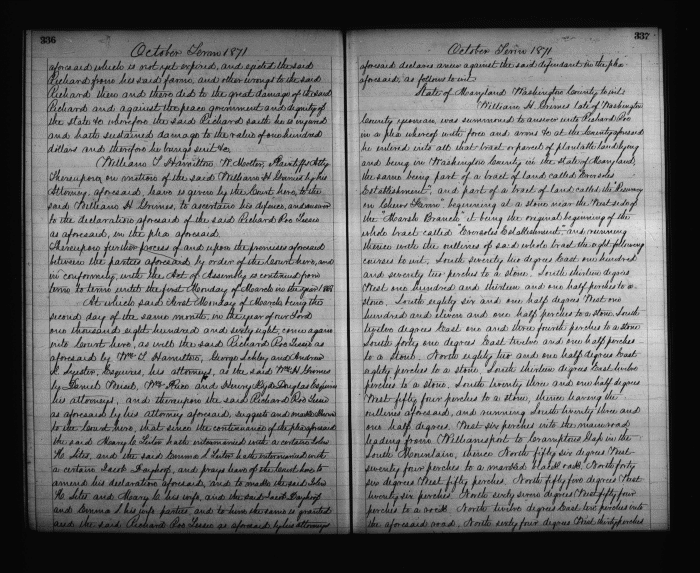 336
October Term 1871
aforesaid which is not yet expired, and ejected the said
Richard from his said farm, and other wrongs to the said
Richard then and there did to the great damage of the said
Richard and against the peace government and dignity of
the State &c wherefore the said Richard saith he is injured
and hath sustained damage to the value of one hundred
dollars and therefore he brings suit &c,
William T Hamilton, W. Motter, Plaintiffs Attys
Thereupon, on motion of the said William H Grimes by his
Attorney, aforesaid, leave is given by the Court here, to the
said William H Grimes, to ascertain his defence, and answer
to the declaration aforesaid of the said Richard Roe Lessee
as aforesaid, in the plea aforesaid.
Thereupon further process of and upon the premises aforesaid
between the parties aforesaid by order of the Court here, and
in conformity, with the Act of Assembly is continued from
term to term until the first Monday of March in the year 1868
At which said first Monday of March being the
second day of the same month, in the year of our Lord
one thousand eight hundred and sixty eight, come again
into Court here, as well the said Richard Roe Lessee as
aforesaid by Wm T Hamilton, George Schley and Andrew
K Syester, Esquires, his attorneys, as the said Wm H Grimes
by Daniel Weisel, Wm and Henry Kyd Douglas Esquires
his attorneys, and thereupon the said Richard Roe Lessee
as aforesaid by his attorney aforesaid, suggests and makes known
to the Court here, that since the continuance of the plea aforesaid
the said Mary C hath intermarried with a certain John
H Sites, and the said Emma S hath intermarried with
a certain Jacob Dayhoff, and prays leave of the Court here to
amend his declaration aforesaid, and to make the said John
H Sites and Mary C his wife, and the said Jacob Dayhoff
and Emma S his wife parties, and to him the same is granted
and the said Richard Roe Lessee as aforesaid by his attorneys
337
October Term 1871
aforesaid declares anew against the said defendant in the plea
aforesaid, as follows to wit
State of Maryland Washington County to wit:
William H. Grimes late of Washington
County yeoman, was summoned to answer unto Richard Roe
in a plea wherefore with force and arms &c at the County aforesaid
he entered into all that tract or parcel of plantable land lying
and being in Washington County in the State of Maryland,
the same being part of a tract of land called "
Establishment", and part of a tract of land called the Resurvey
on " Farm" beginning at a stone near the West side of
the "Marsh Branch" it being the original beginning of the
whole tract called " Establishment" and running
thence with the outlines of said whole tract the eight following
courses to wit, South seventy two degrees East one hundred
and seventy two perches to a stone, South thirteen degrees
West one hundred and thirteen and one half perches to a
stone, South eighty six and one half degrees West one
hundred and eleven and one half perches to a stone, South
twelve degrees East one and three fourth perches to a stone
South forty one degrees East twelve and one half perches
to a stone. North eighty two and one half degrees East
eighty perches to a stone, South thirteen degrees East twelve
perches to a stone, South twenty three and one half degrees
West fifty four perches to a stone, thence leaving the
outlines aforesaid, and running South twenty three and
one half degrees. West six perches into the main road
leading from Williamsport to Cramptons Gap in the
South Mountain, thence North fifty six degrees West
seventy four perches to a marked black oak, North forty
six degrees West fifty perches, North fifty two degrees West
twenty six perches North sixty seven degrees West fifty four
perches to a rock North twelve degrees East two perches into
the aforesaid road, North sixty four degrees West thirty perches